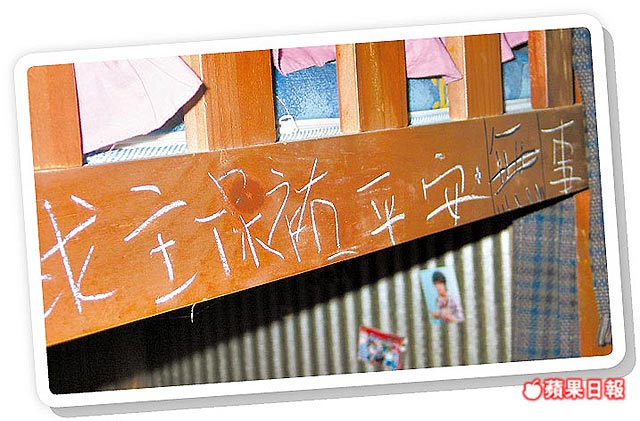 求主保祐平安無事
蘋果日報